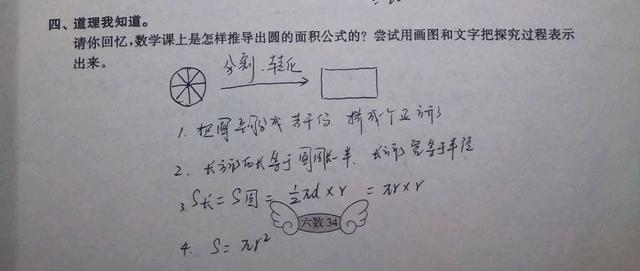 四、道理我知道。
请你回忆,数学课上是怎样推导出圆的面积公式的？尝试用画图和文字把探究过程表示
出来。
分割.转化
1. 把圆平均分成若干份 拼成个近
2. 长方形的长等于圆周长一半. 长方形宽等于半径
3. S长=S圆=½πd×r =πr×r
六数34
4. S=πr²